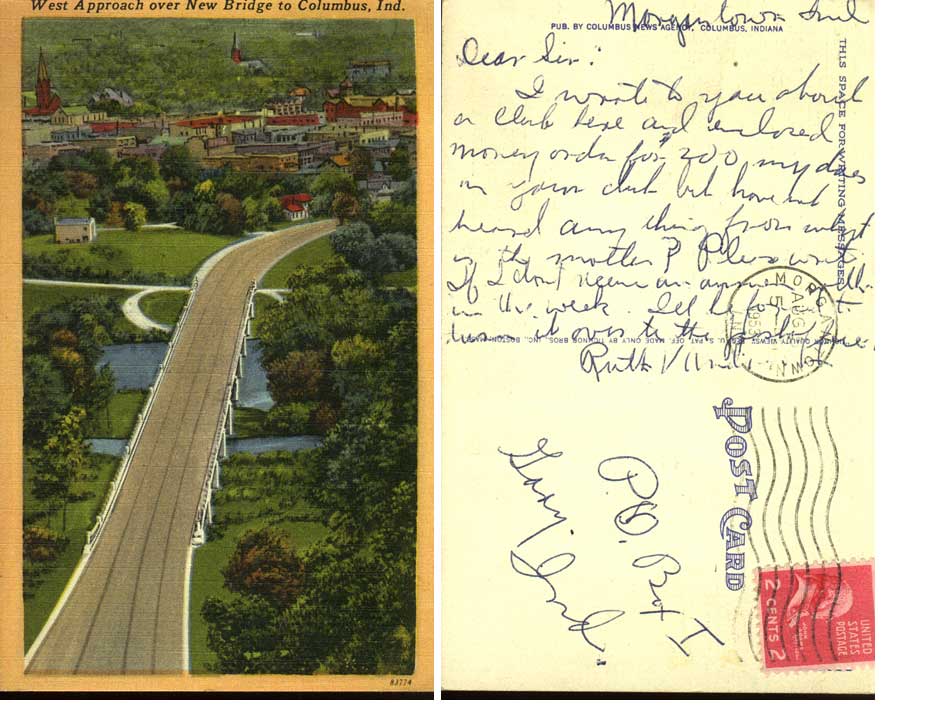 West Approach over New Bridge to Columbus, Ind.
83774
Morgantown Ind
PUB. BY COLUMBUS NEWS AGENCY, COLUMBUS, INDIANA
THIS SPACE FOR WRITING MESSAGES
Dear Sir:
I wrote to you about
a club here and enclosed
money order for $200 my dues
in your club but have not
heard any thing from
is the matter?
If I don't an answer
in the week
it over to the
Ruth
QUALITY VIEWS" U. S. PAT. OFF. MADE ONLY BY TICHNOR BROS., INC., BOSTON, MASS.
MORGANTOWN
AUG
5
1953
IND.
POST CARD
P.O. Box 1
Gary, Ind.
UNITED
STATES
POSTAGE
JOHN ADAMS
2 CENTS 2